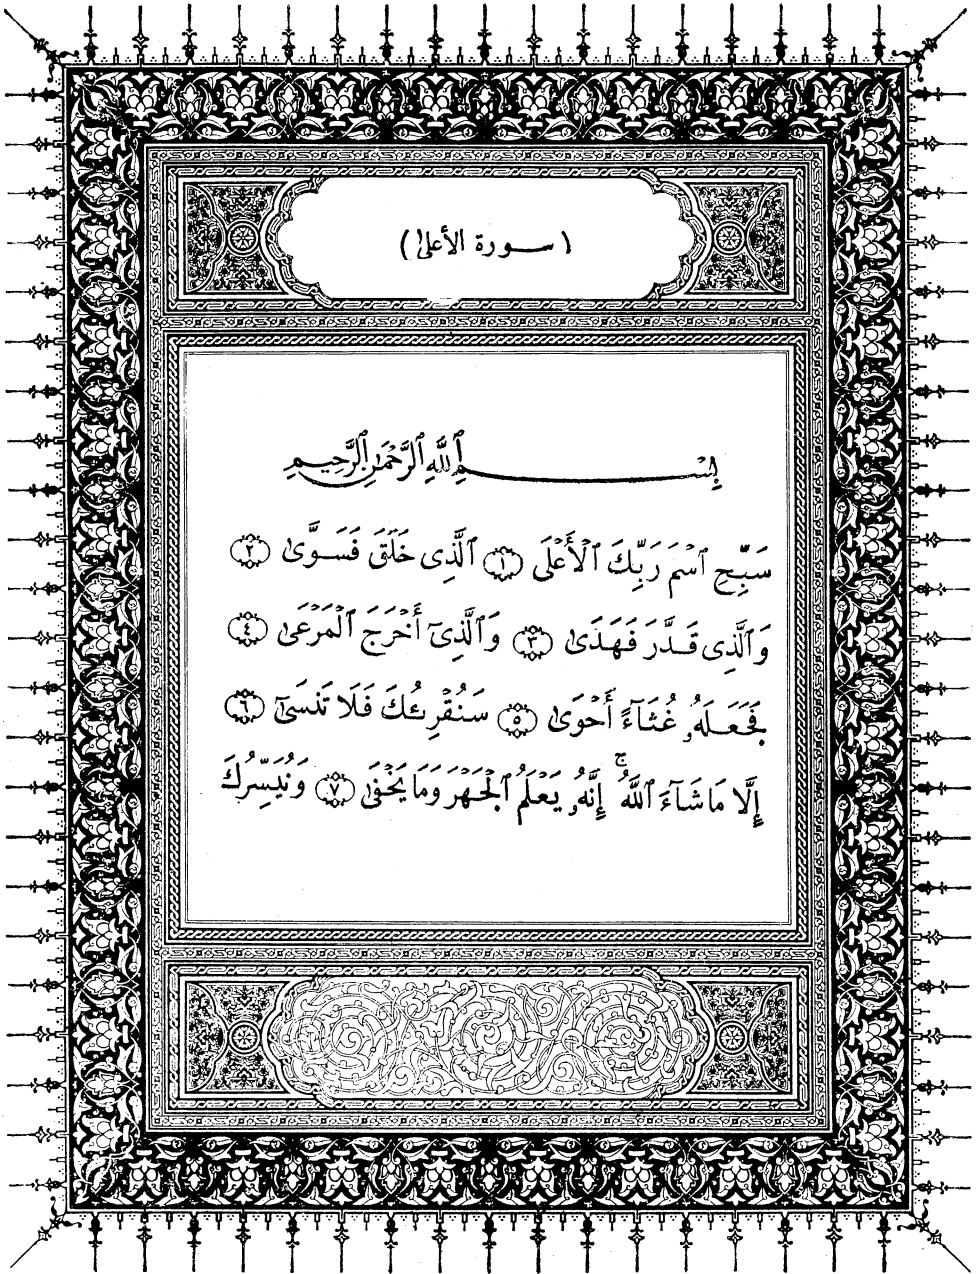 (سورة الأعلى)
بِسْمِ ٱللَّهِ ٱلرَّحْمَٰنِ ٱلرَّحِيمِ
سَبِّحِ ٱسْمَ رَبِّكَ ٱلْأَعْلَى ١ ٱلَّذِى خَلَقَ فَسَوَّىٰ ٢
وَٱلَّذِى قَدَّرَ فَهَدَىٰ ٣ وَٱلَّذِىٓ أَخْرَجَ ٱلْمَرْعَىٰ ٤
فَجَعَلَهُۥ غُثَآءً أَحْوَىٰ ٥ سَنُقْرِئُكَ فَلَا تَنسَىٰٓ ٦
إِلَّا مَا شَآءَ ٱللَّهُ ۚ إِنَّهُۥ يَعْلَمُ ٱلْجَهْرَ وَمَا يَخْفَىٰ ٧ وَنُيَسِّرُكَ